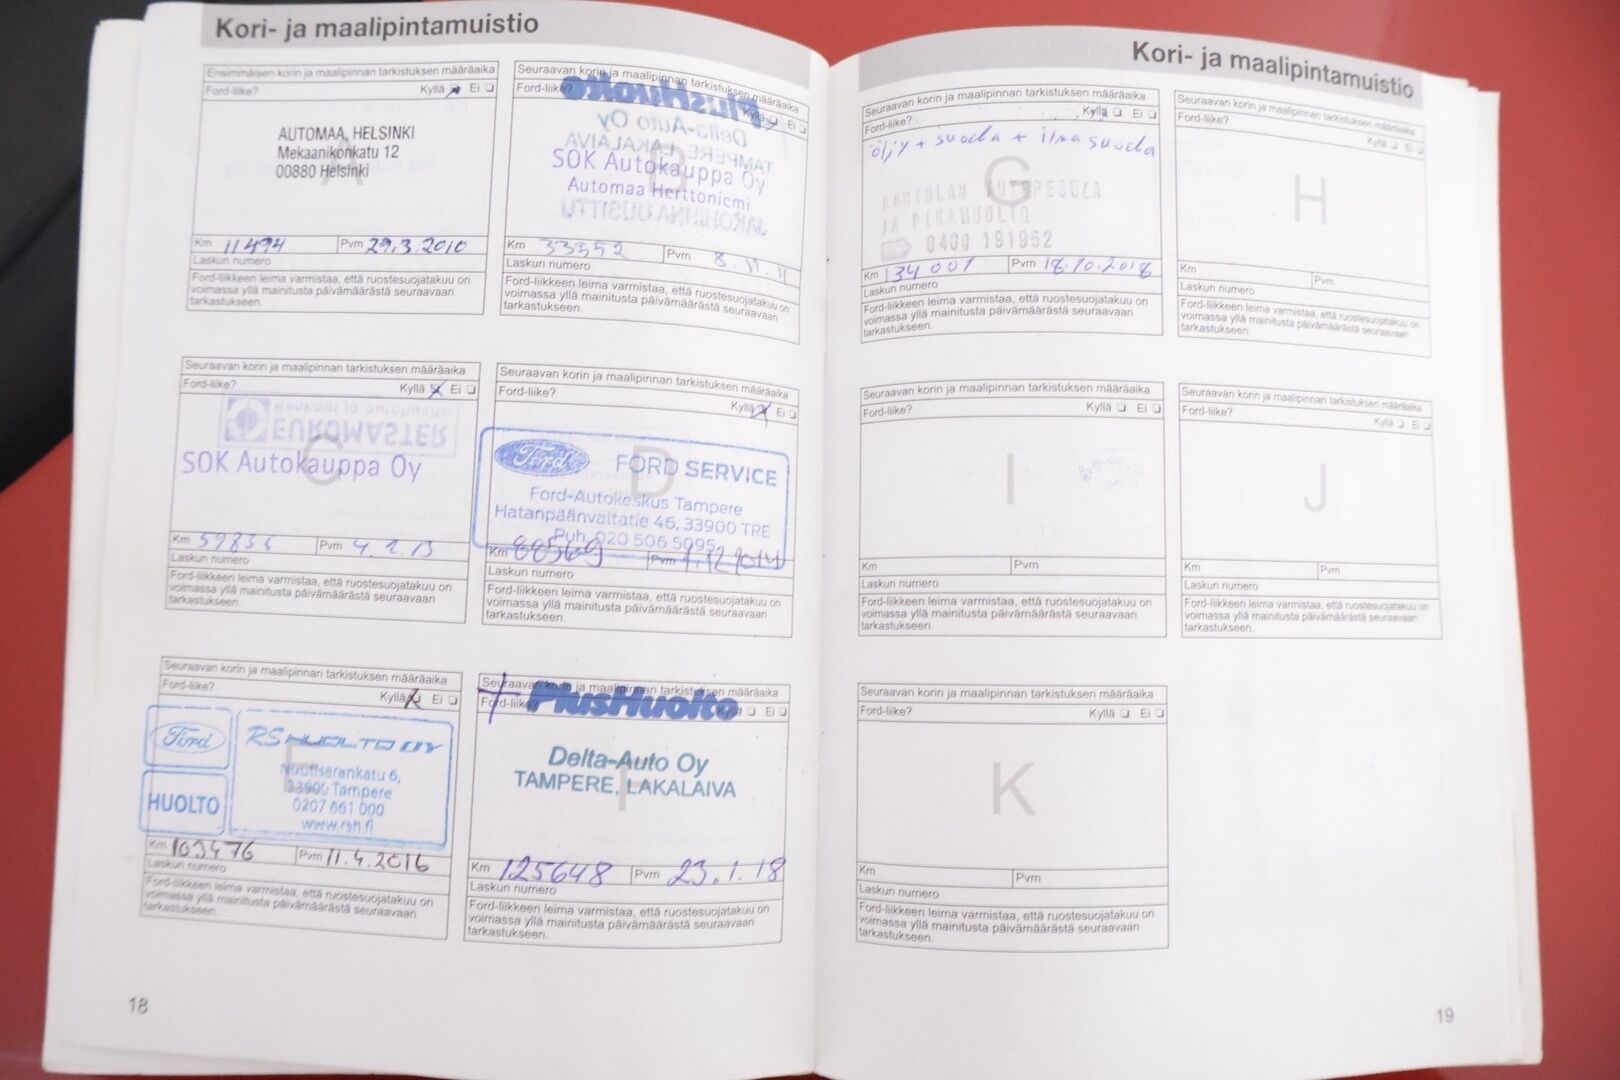 Kori- ja maalipintamuistio
Ensimmäisen korin ja maalipinnan tarkistuksen määräaika
Ford-liike? Kyllä Ei
A
AUTOMAA, HELSINKI
Mekaanikonkatu 12
00880 Helsinki
Km 11494 Pvm 29.3.2010
Laskun numero
Ford-liikkeen leima varmistaa, että ruostesuojatakuu on
voimassa yllä mainitusta päivämäärästä seuraavaan
tarkastukseen.
Seuraavan korin ja maalipinnan tarkistuksen määräaika
Ford-liike? Kyllä Ei
PlusHuolto
Delta-Auto Oy
TAMPERE, LAKALAIVA
B
SOK Autokauppa Oy
Automaa Herttoniemi
JAKOHIHNA UUSITTU
Km 33352 Pvm 8.11.11
Laskun numero
Ford-liikkeen leima varmistaa, että ruostesuojatakuu on
voimassa yllä mainitusta päivämäärästä seuraavaan
tarkastukseen.
Seuraavan korin ja maalipinnan tarkistuksen määräaika
Ford-liike? Kyllä Ei
Renkaat ja autohuolto
EUROMASTER
C
SOK Autokauppa Oy
Km 59836 Pvm 4.2.13
Laskun numero
Ford-liikkeen leima varmistaa, että ruostesuojatakuu on
voimassa yllä mainitusta päivämäärästä seuraavaan
tarkastukseen.
Seuraavan korin ja maalipinnan tarkistuksen määräaika
Ford-liike? Kyllä Ei
D
Ford FORD SERVICE
Ford-Autokeskus Tampere
Hatanpäänvaltatie 46, 33900 TRE
Puh. 020 506 5095
Km 88569 Pvm 1.12.2014
Laskun numero
Ford-liikkeen leima varmistaa, että ruostesuojatakuu on
voimassa yllä mainitusta päivämäärästä seuraavaan
tarkastukseen.
Seuraavan korin ja maalipinnan tarkistuksen määräaika
Ford-liike? Kyllä Ei
E
Ford RS HUOLTO OY
Nuutisarankatu 6,
33900 Tampere
HUOLTO 0207 661 000
www.rsh.fi
Km 103476 Pvm 11.4.2016
Laskun numero
Ford-liikkeen leima varmistaa, että ruostesuojatakuu on
voimassa yllä mainitusta päivämäärästä seuraavaan
tarkastukseen.
Seuraavan korin ja maalipinnan tarkistuksen määräaika
Ford-liike? Kyllä Ei
PlusHuolto
F
Delta-Auto Oy
TAMPERE, LAKALAIVA
Km 125648 Pvm 23.1.18
Laskun numero
Ford-liikkeen leima varmistaa, että ruostesuojatakuu on
voimassa yllä mainitusta päivämäärästä seuraavaan
tarkastukseen.
18
Kori- ja maalipintamuistio
Seuraavan korin ja maalipinnan tarkistuksen määräaika
Ford-liike? Kyllä Ei
öljy + suoda + ilma suoda
G
AUTOPESULA
JA PIKAHUOLTO
0400 191952
Km 134 001 Pvm 18.10.2018
Laskun numero
Ford-liikkeen leima varmistaa, että ruostesuojatakuu on
voimassa yllä mainitusta päivämäärästä seuraavaan
tarkastukseen.
Seuraavan korin ja maalipinnan tarkistuksen määräaika
Ford-liike? Kyllä Ei
H
Km Pvm
Laskun numero
Ford-liikkeen leima varmistaa, että ruostesuojatakuu on
voimassa yllä mainitusta päivämäärästä seuraavaan
tarkastukseen.
Seuraavan korin ja maalipinnan tarkistuksen määräaika
Ford-liike? Kyllä Ei
I
Km Pvm
Laskun numero
Ford-liikkeen leima varmistaa, että ruostesuojatakuu on
voimassa yllä mainitusta päivämäärästä seuraavaan
tarkastukseen.
Seuraavan korin ja maalipinnan tarkistuksen määräaika
Ford-liike? Kyllä Ei
J
Km Pvm
Laskun numero
Ford-liikkeen leima varmistaa, että ruostesuojatakuu on
voimassa yllä mainitusta päivämäärästä seuraavaan
tarkastukseen.
Seuraavan korin ja maalipinnan tarkistuksen määräaika
Ford-liike? Kyllä Ei
K
Km Pvm
Laskun numero
Ford-liikkeen leima varmistaa, että ruostesuojatakuu on
voimassa yllä mainitusta päivämäärästä seuraavaan
tarkastukseen.
19